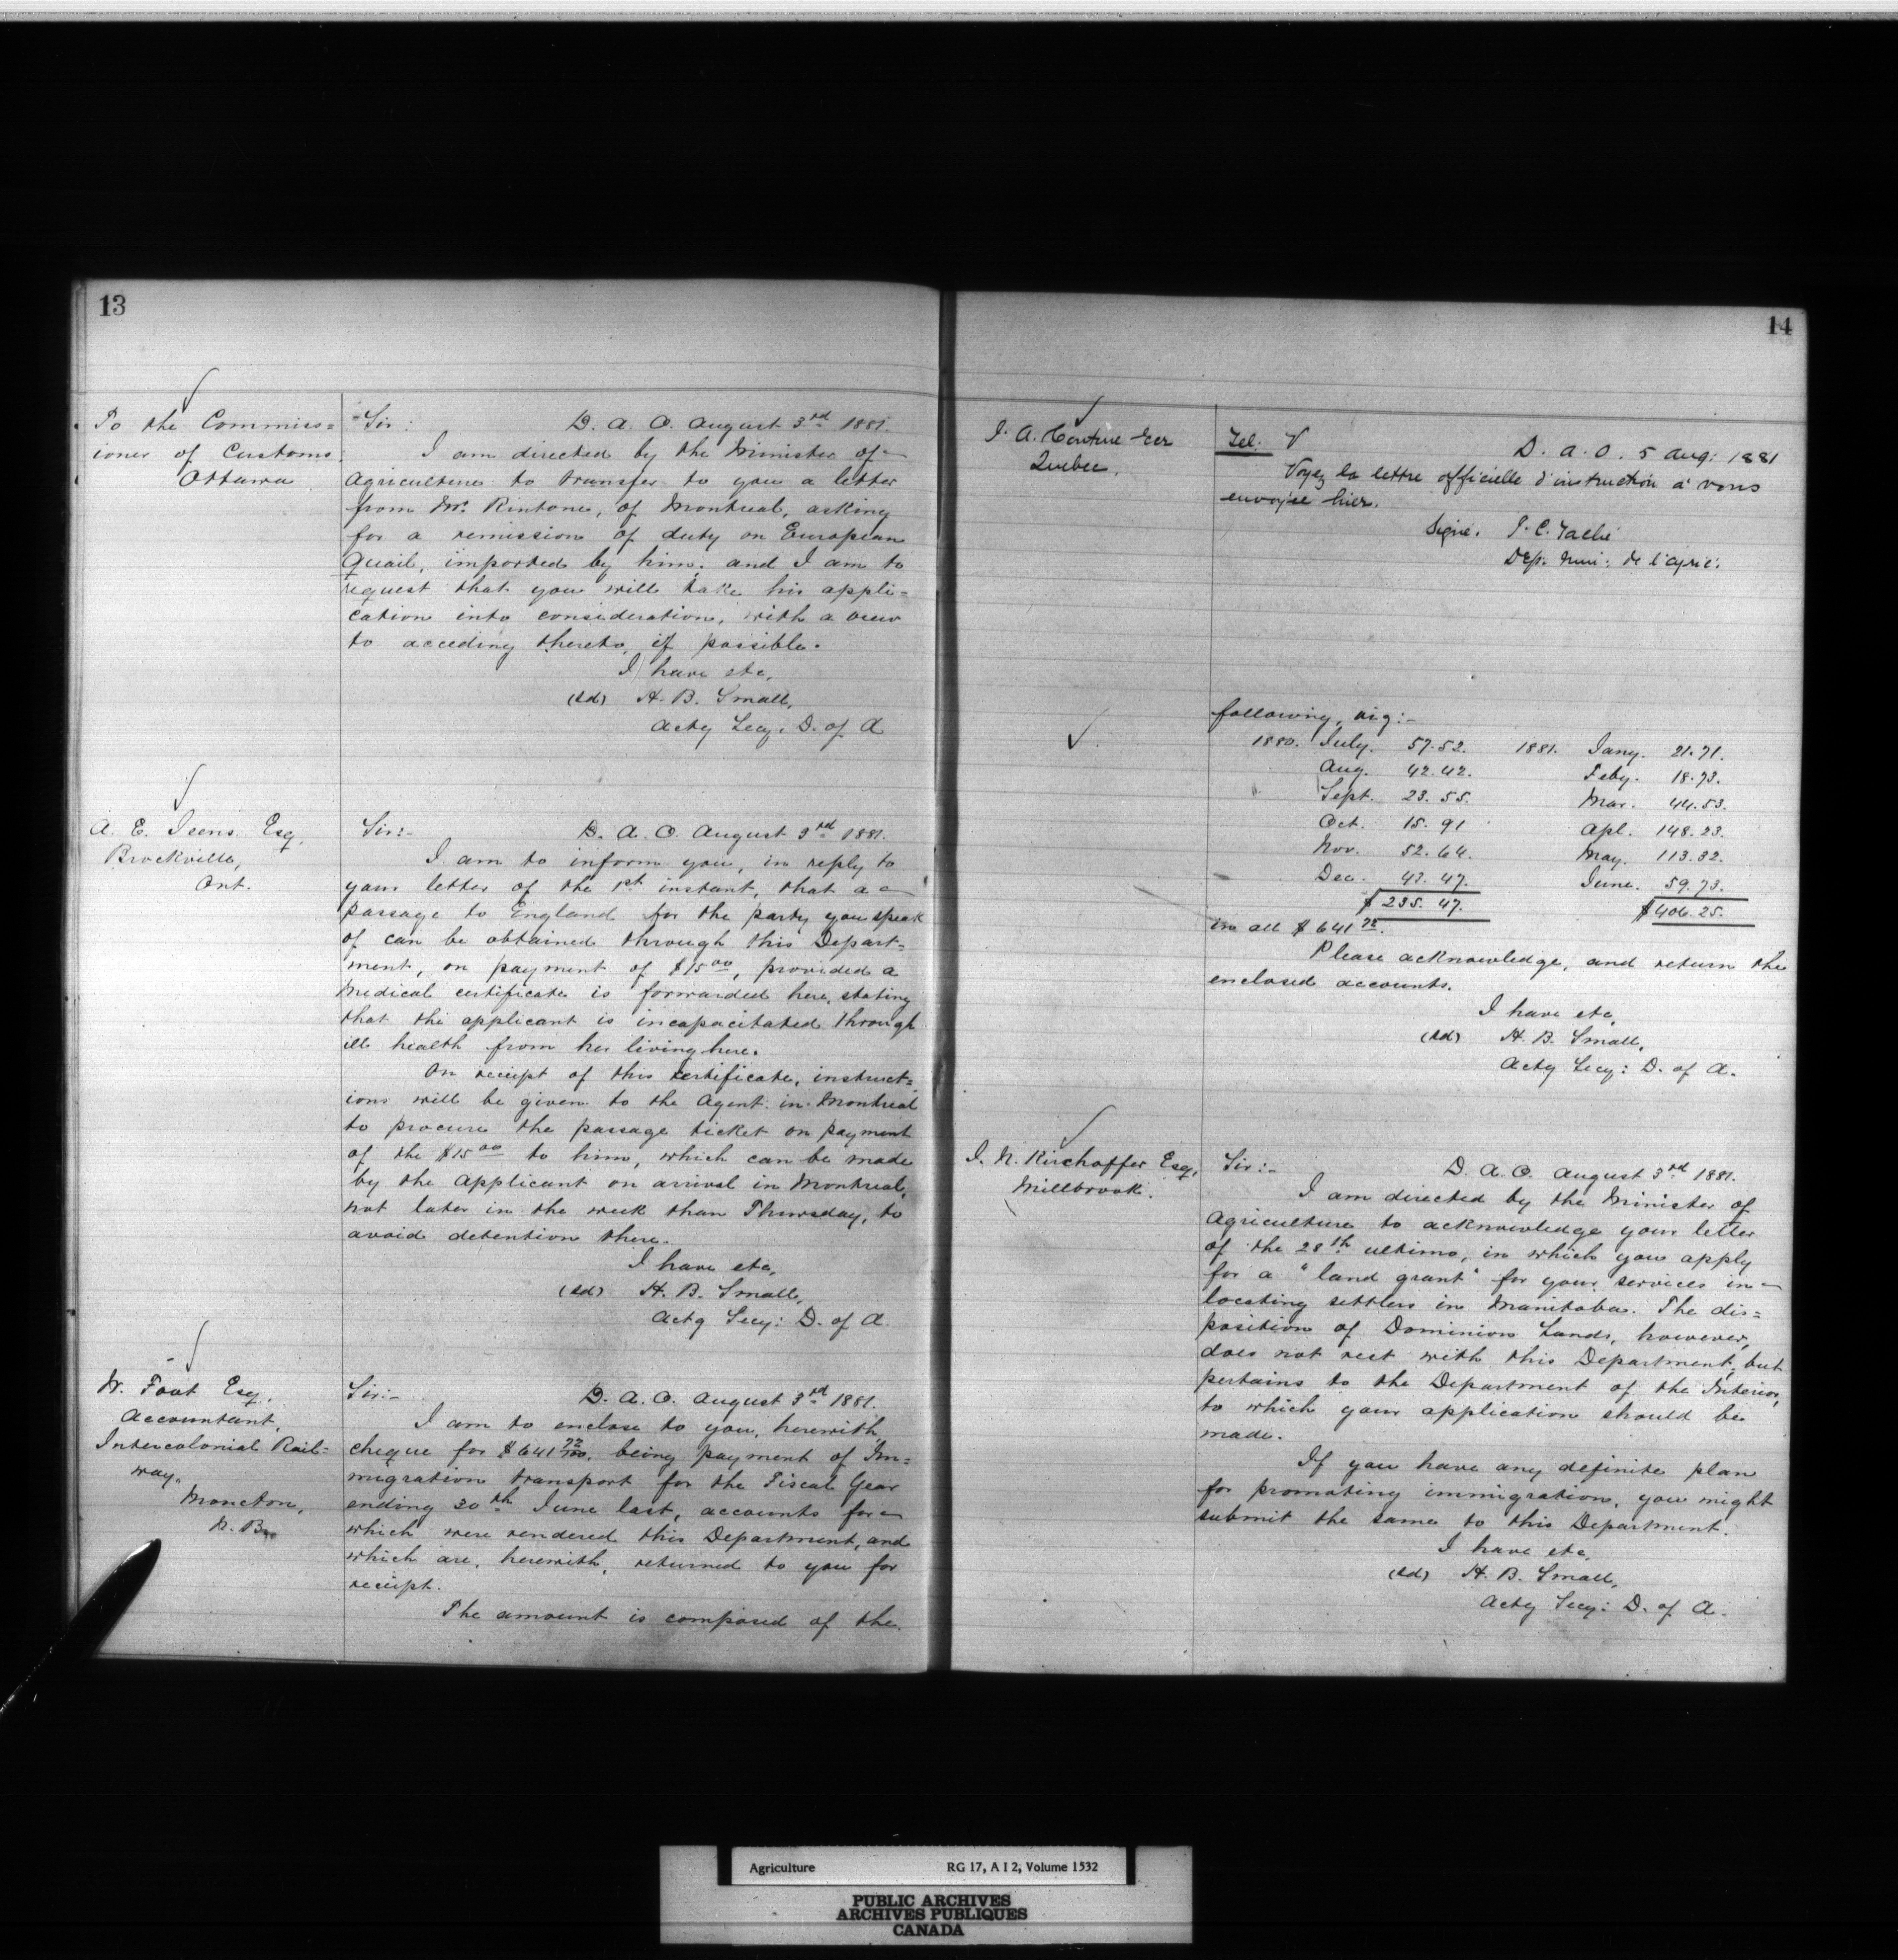 13
To the Commiss=
ioner of Customs.
Ottawa
Sir: D. A. O. August 3rd 1881.
I am directed by the Minister of
Agriculture to transfer to you a letter
from Mr. Rintone, of Montreal, asking
for a remission of duty on European
Quail, imported by him; and I am to
request that you will take his appli=
cation into consideration, with a view
to acceding thereto, if possible.
I have etc,
(sd) H. B. Small,
Actg Secy. D. of A
A. E. Isens Esq,
Brockville,
Ont.
Sir:- D. A. O. August 3rd 1881.
I am to inform you, in reply to
your letter of the 1st instant, that a
passage to England for the party you speak
of can be obtained through this Depart=
ment, on payment of $15 00, provided a
Medical certificate is forwarded here, stating
that the applicant is incapacitated through
ill health from her living here.
On receipt of this certificate, instruct=
ions will be given to the Agent in Montreal
to procure the passage ticket on payment
of the $15 00 to him, which can be made
by the applicant on arrival in Montreal,
not later in the week than Thursday, to
avoid detention there.
I have etc,
(sd) H. B. Small,
Actg Secy: D. of A.
W. Foot Esq,
Accountant,
Intercolonial Rail=
way,
Moncton,
N. B.
Sir:- D. A. O. August 3rd 1881.
I am to enclose to you, herewith,
cheque for $641 72/100, being payment of Im=
migration transport for the Fiscal Year
ending 30th June last, accounts for
which were rendered this Department, and
which are, herewith, returned to you for
receipt.
The amount is composed of the
14
J. A. Couture Ecr
Quebec.
Tel. D. A. O. 5 Aug: 1881
Voyez la lettre officielle d'instruction à vous
envoyée hier.
Signé. J. C. Taché
Dép. Min: de l'agric:
following, viz:-
1880. July. 57.52. 1881. Jany. 21.71.
Aug. 42.42. Feby. 18.73.
Sept. 23.55. Mar. 44.53.
Oct. 15.91 Apl. 148.23.
Nov. 52.64. May. 113.32.
Dec. 43.47. June. 59.73.
$235.47. $406.25.
in all $641 72.
Please acknowledge, and return the
enclosed accounts.
I have etc,
(sd) H. B. Small,
Actg Secy: D. of A.
J. N. Kirchoffer Esq,
Millbrook.
Sir:- D. A. O. August 3rd 1881.
I am directed by the Minister of
Agriculture to acknowledge your letter
of the 28th ultimo, in which you apply
for a "land grant" for your services in
locating settlers in Manitoba. The dis=
position of Dominion Lands, however,
does not rest with this Department, but
pertains to the Department of the Interior,
to which your application should be
made.
If you have any definite plan
for promoting immigration, you might
submit the same to this Department.
I have etc,
(sd) H. B. Small,
Actg Secy: D. of A.
Agriculture RG 17, A I 2, Volume 1532
PUBLIC ARCHIVES
ARCHIVES PUBLIQUES
CANADA